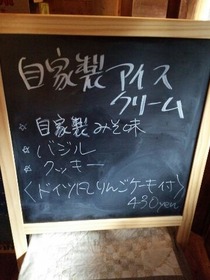 自家製アイス
クリーム
☆ 自家製みそ味
☆ バジル
☆ クッキー
〈ドイツFしりんごケーキ付〉
430yen